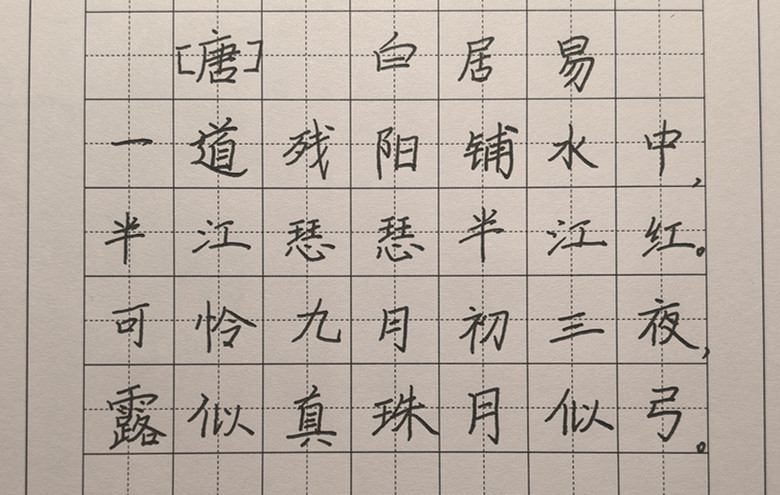 [唐] 白居易
一道残阳铺水中,
半江瑟瑟半江红。
可怜九月初三夜,
露似真珠月似弓。